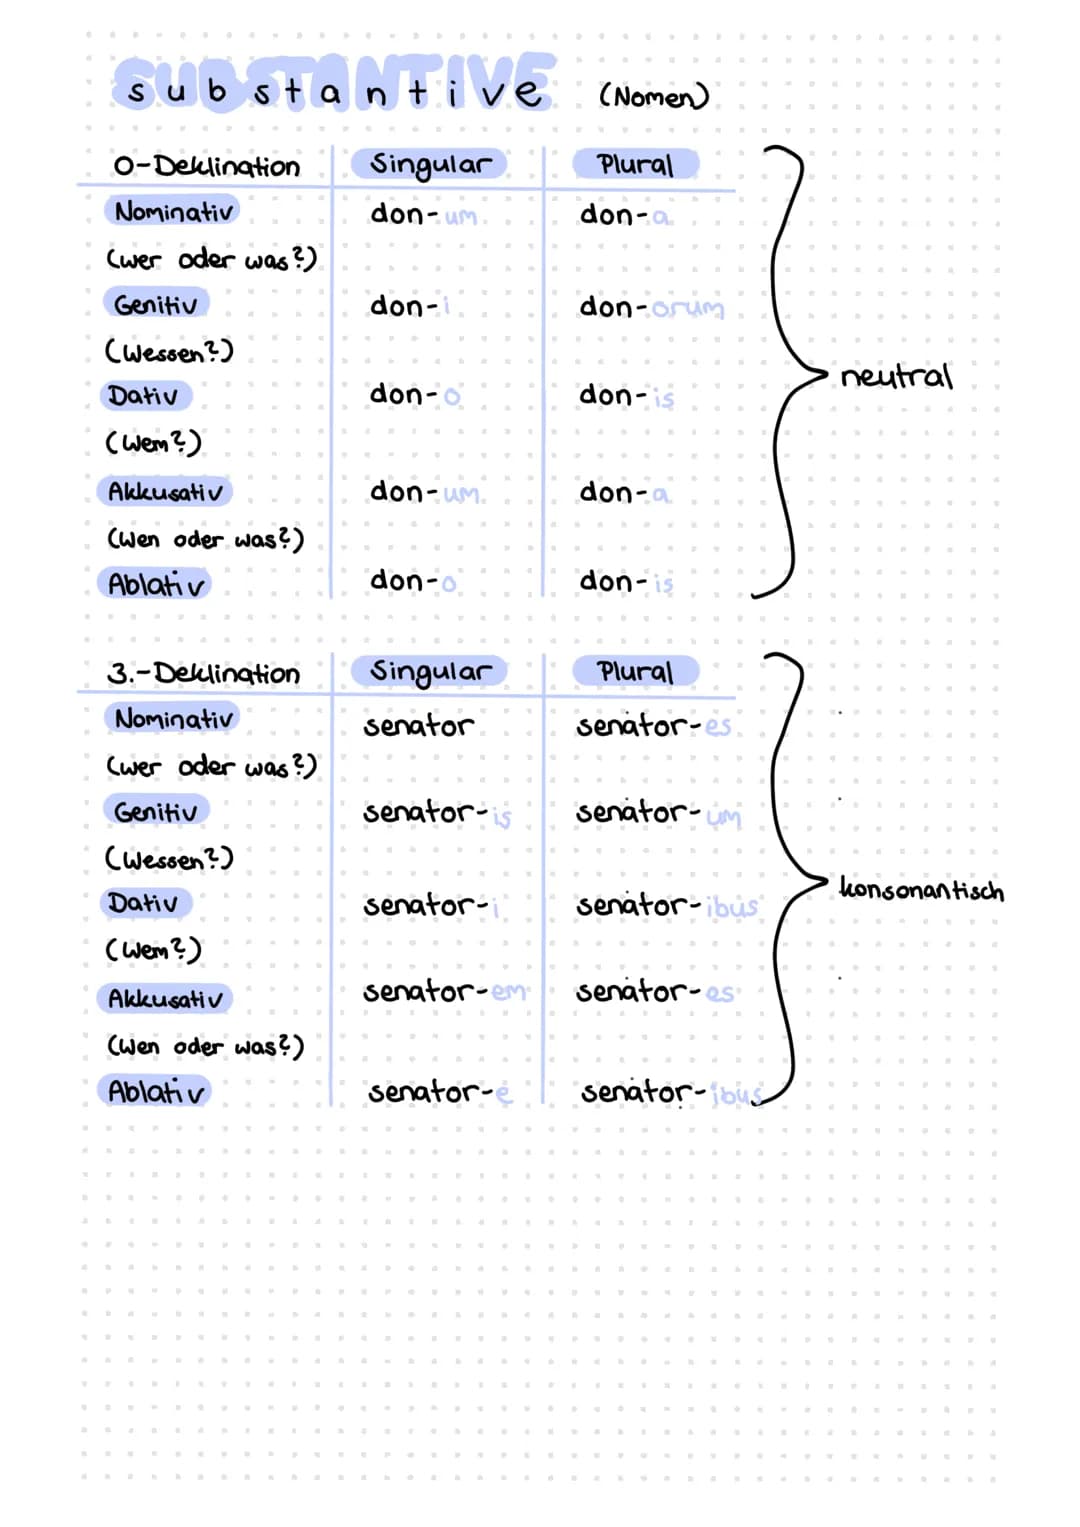 SUBSTANTIVE
substantive (Nomen)
O-Deklination Singular Plural
Nominativ don-um don-a
(wer oder was?)
Genitiv don-i don-orum
(Wessen?)
neutral
Dativ don-o don-is
(Wem?)
Akkusativ don-um don-a
(Wen oder was?)
Ablativ don-o don-is
3.-Deklination Singular Plural
Nominativ senator senator-es
(wer oder was?)
Genitiv senator-is senator-um
(Wessen?)
konsonantisch
Dativ senator-i senator-ibus
(Wem?)
Akkusativ senator-em senator-es
(Wen oder was?)
Ablativ senator-e senator-ibus